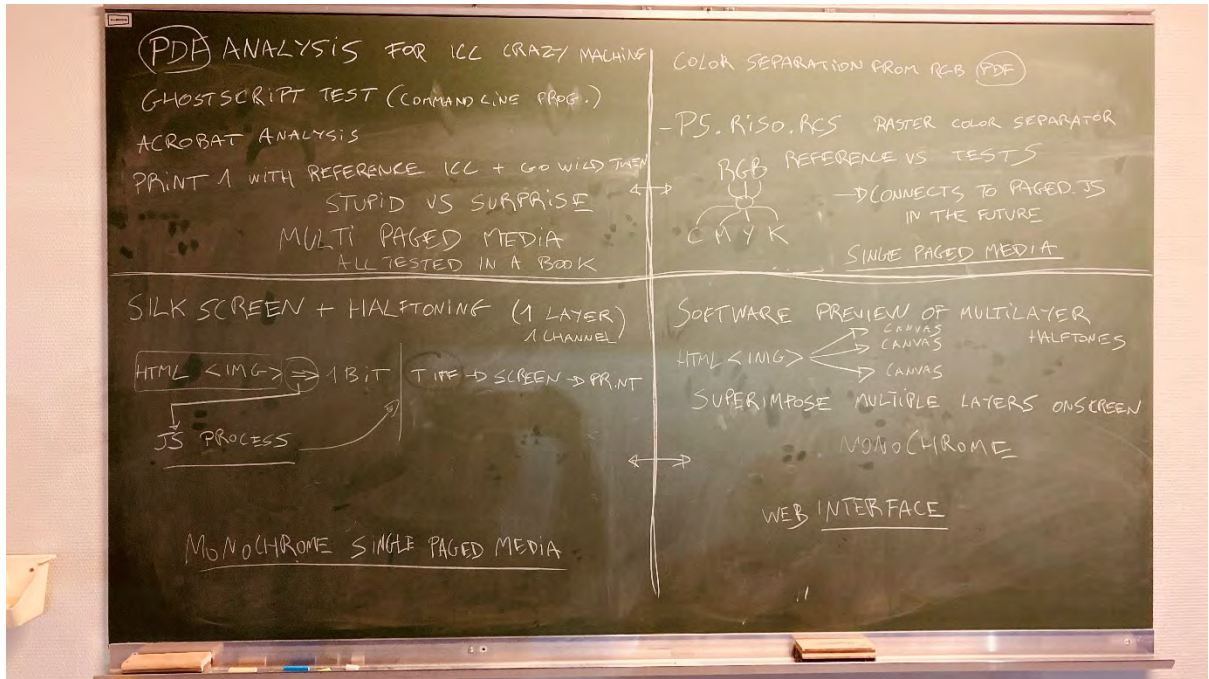 PDF ANALYSIS FOR ICC CRAZY MACHING
GHOSTSCRIPT TEST (COMMAND LINE PROG.)
ACROBAT ANALYSIS
PRINT 1 WITH REFERENCE ICC + GO WILD THEN
STUPID VS SURPRISE
MULTI PAGED MEDIA
ALL TESTED IN A BOOK
COLOR SEPARATION FROM RGB PDF
- PS.RISO.RCS RASTER COLOR SEPARATOR
REFERENCE VS TESTS
RGB
→ CONNECTS TO PAGED.JS
IN THE FUTURE
C M Y K
SINGLE PAGED MEDIA
SILK SCREEN + HALFTONING (1 LAYER)
1 CHANNEL
HTML <IMG> ⇒ 1 BIT TIFF → SCREEN → PRINT
JS PROCESS
MONOCHROME SINGLE PAGED MEDIA
SOFTWARE PREVIEW OF MULTILAYER
HALFTONES
CANVAS
CANVAS
HTML <IMG>
CANVAS
SUPERIMPOSE MULTIPLE LAYERS ONSCREEN
MONOCHROME
WEB INTERFACE